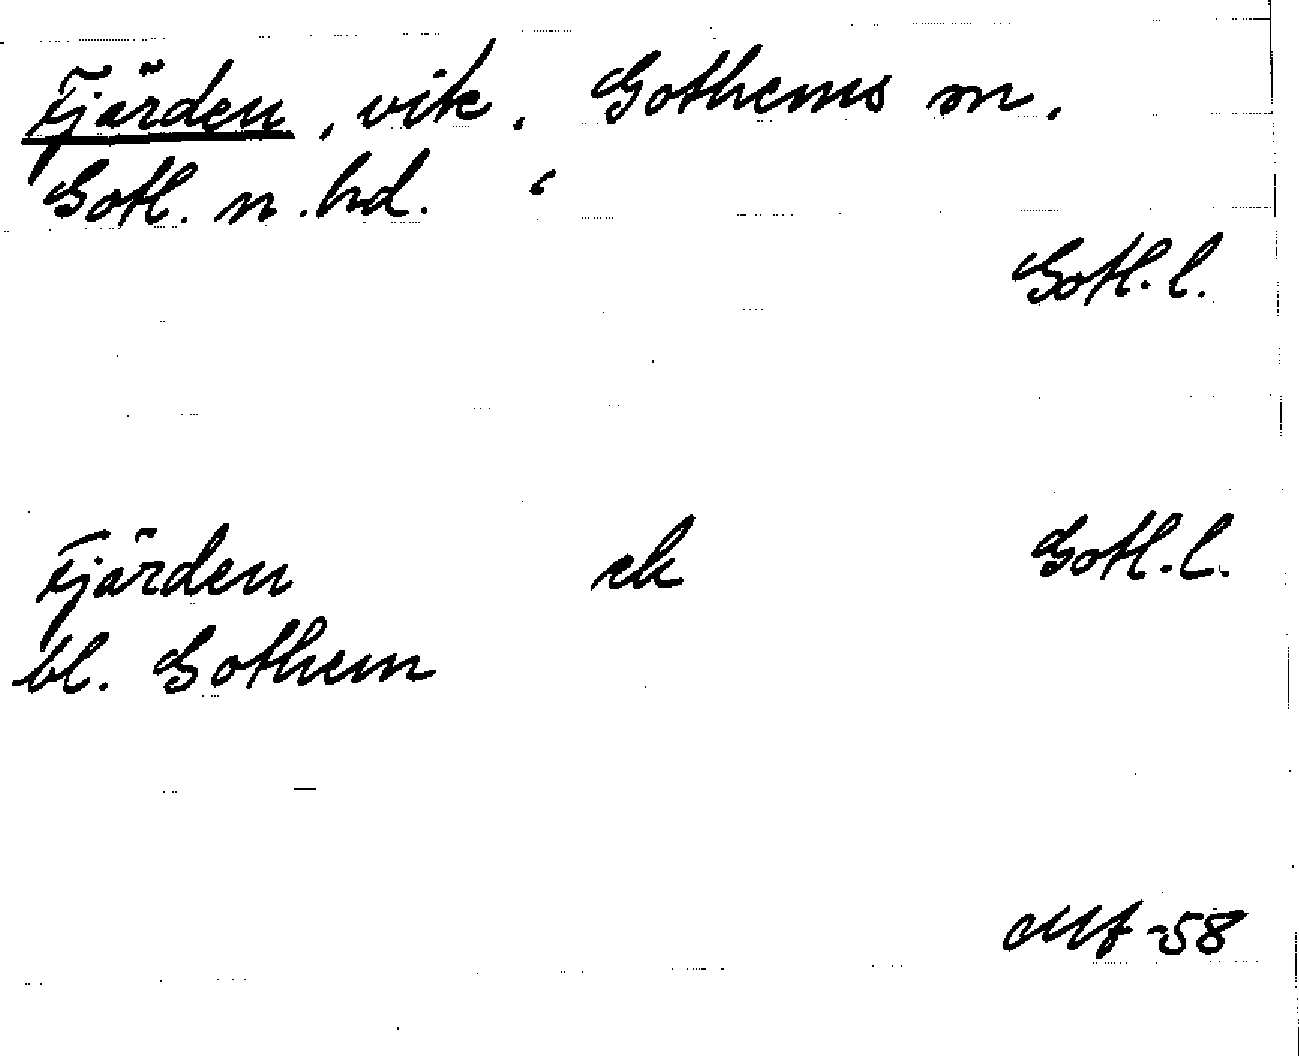 Fjärden, vik. Gothems sn.
Gotl. n. hd.
Gotl. l.
Fjärden ek Gotl. l.
bl. Gothem
-58